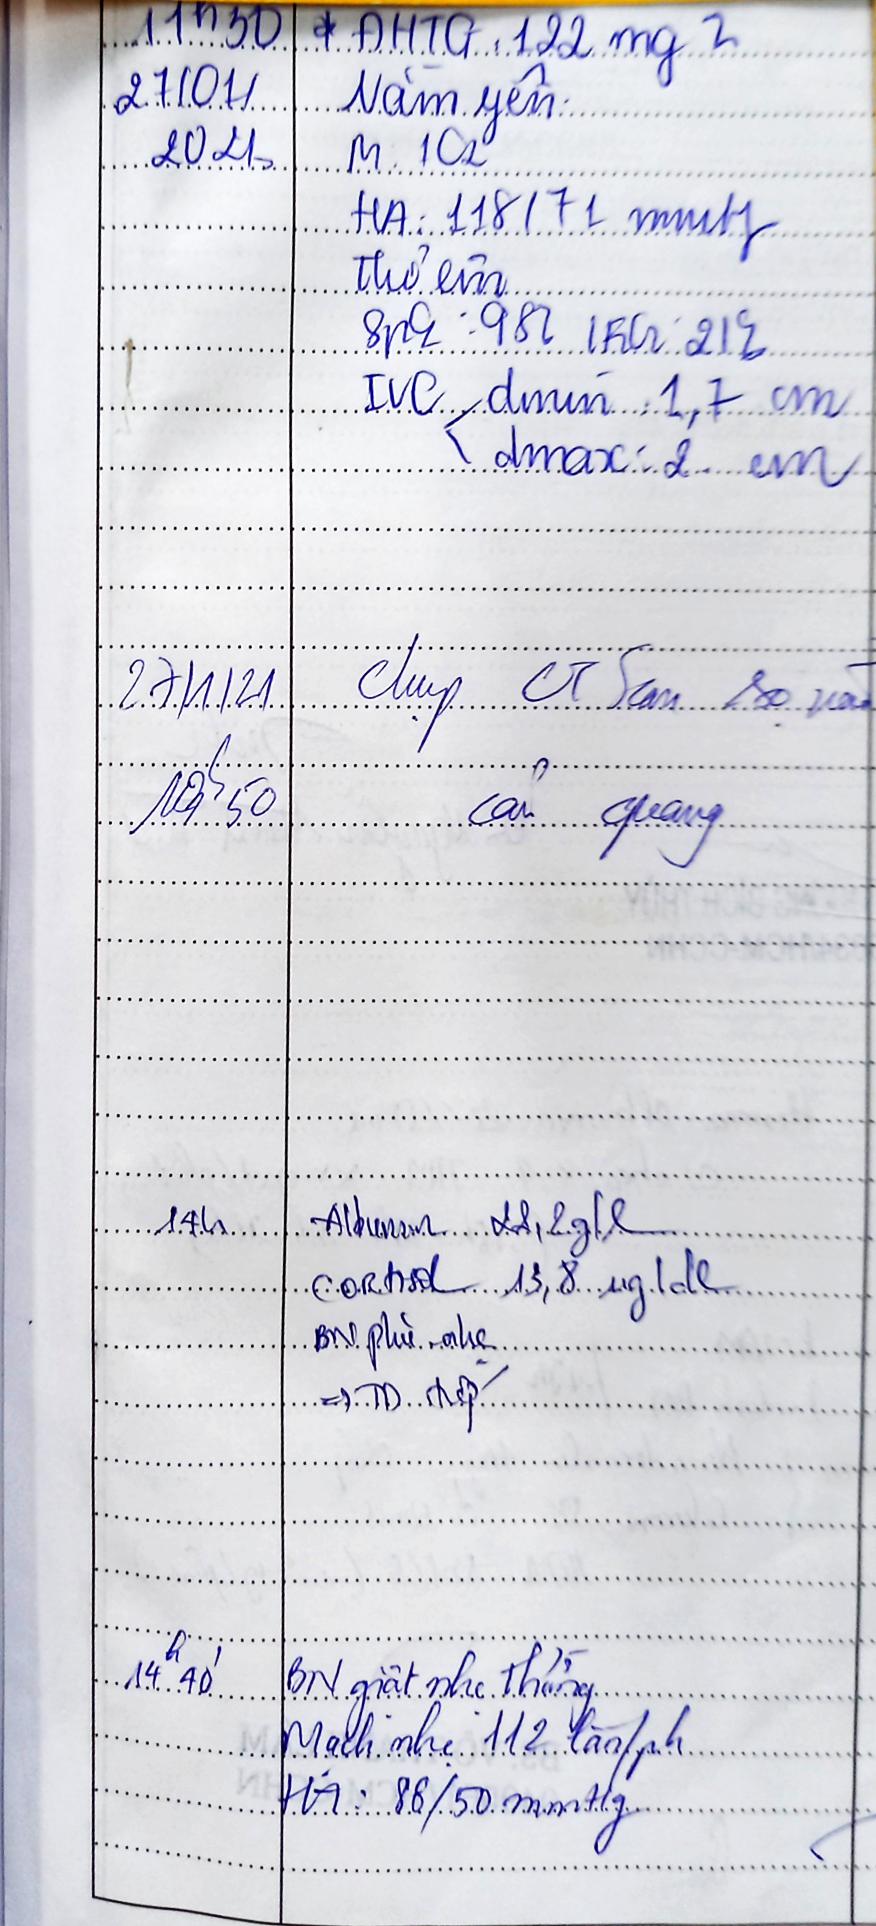 11h30 * ĐHTG: 122 mg %
27/01/ Nằm yên.
2021 M: 102
HA: 118/71 mmHg
Thở êm
SpO2: 98%
IVC dmin: 1,7 cm
dmax: 2 cm
27/1/21 Chụp CT Scan sọ não
cản quang
50
14h Albumin g/l
CORTISOL 13,8 ug/dl
BN phù nhẹ
=> TD
14h40' BN giật nhẹ
Mạch nhẹ 112 lần/ph
HA: 86/50 mmHg